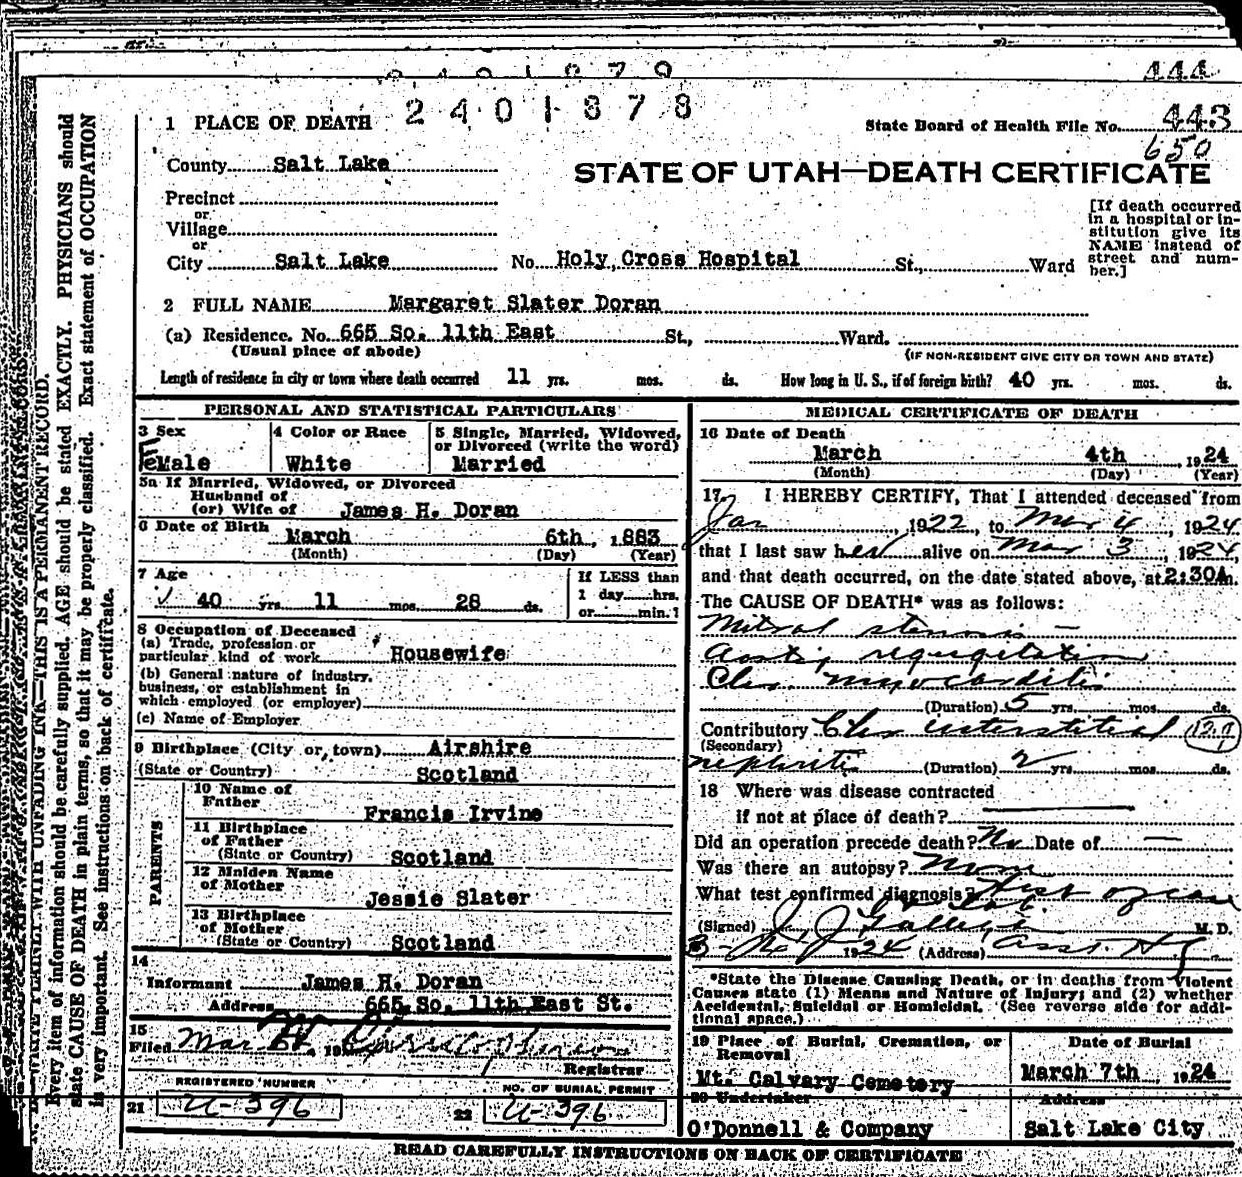 444
2401878
443
State Board of Health File No.
650
1 PLACE OF DEATH
County Salt Lake
STATE OF UTAH—DEATH CERTIFICATE
Precinct
or
Village
or
City Salt Lake No. Holy Cross Hospital St., Ward
[If death occurred
in a hospital or in-
stitution give its
NAME instead of
street and num-
ber.]
2 FULL NAME Margaret Slater Doran
(a) Residence. No. 665 So. 11th East St., Ward.
(Usual place of abode) (IF NON-RESIDENT GIVE CITY OR TOWN AND STATE)
Length of residence in city or town where death occurred 11 yrs. mos. ds. How long in U. S., if of foreign birth? 40 yrs. mos. ds.
PERSONAL AND STATISTICAL PARTICULARS
3 Sex
FeMale
4 Color or Race
White
5 Single, Married, Widowed,
or Divorced (write the word)
Married
5a If Married, Widowed, or Divorced
Husband of
(or) Wife of James H. Doran
6 Date of Birth March 6th, 1883
(Month) (Day) (Year)
7 Age
40 yrs 11 mos. 28 ds.
If LESS than
1 day hrs.
or min.?
8 Occupation of Deceased
(a) Trade, profession or
particular kind of work Housewife
(b) General nature of industry,
business, or establishment in
which employed (or employer)
(c) Name of Employer
9 Birthplace (City or town) Airshire
(State or Country) Scotland
PARENTS
10 Name of
Father Francis Irvine
11 Birthplace
of Father
(State or Country) Scotland
12 Maiden Name
of Mother Jessie Slater
13 Birthplace
of Mother
(State or Country) Scotland
14
Informant James H. Doran
Address 665 So. 11th East St.
15
Filed Mar
Registrar
REGISTERED NUMBER
21 U-396
NO. OF BURIAL PERMIT
22 U-396
MEDICAL CERTIFICATE OF DEATH
16 Date of Death
March 4th, 1924
(Month) (Day) (Year)
17 I HEREBY CERTIFY, That I attended deceased from
Jan, 1922, to Mar 4, 1924,
that I last saw her alive on Mar 3, 1924,
and that death occurred, on the date stated above, at 2:30A m.
The CAUSE OF DEATH* was as follows:
Mitral stenosis —
Aortic regurgitation
Chr. myocarditis
(Duration) 5 yrs. mos. ds.
Contributory Chr interstitial
(Secondary)
nephritis (Duration) 2 yrs. mos. ds.
18 Where was disease contracted
if not at place of death?
Did an operation precede death? No Date of —
Was there an autopsy? None
What test confirmed diagnosis?
(Signed) J. J. M. D.
1924 (Address)
*State the Disease Causing Death, or in deaths from Violent
Causes state (1) Means and Nature of Injury; and (2) whether
Accidental, Suicidal or Homicidal. (See reverse side for addi-
tional space.)
19 Place of Burial, Cremation, or
Removal
Mt. Calvary Cemetery
Date of Burial
March 7th, 1924
20 Undertaker
O'Donnell & Company
Address
Salt Lake City
READ CAREFULLY INSTRUCTIONS ON BACK OF CERTIFICATE
WRITE PLAINLY WITH UNFADING INK—THIS IS A PERMANENT RECORD.
Every item of information should be carefully supplied. AGE should be stated EXACTLY. PHYSICIANS should
state CAUSE OF DEATH in plain terms, so that it may be properly classified. Exact statement of OCCUPATION
is very important. See instructions on back of certificate.